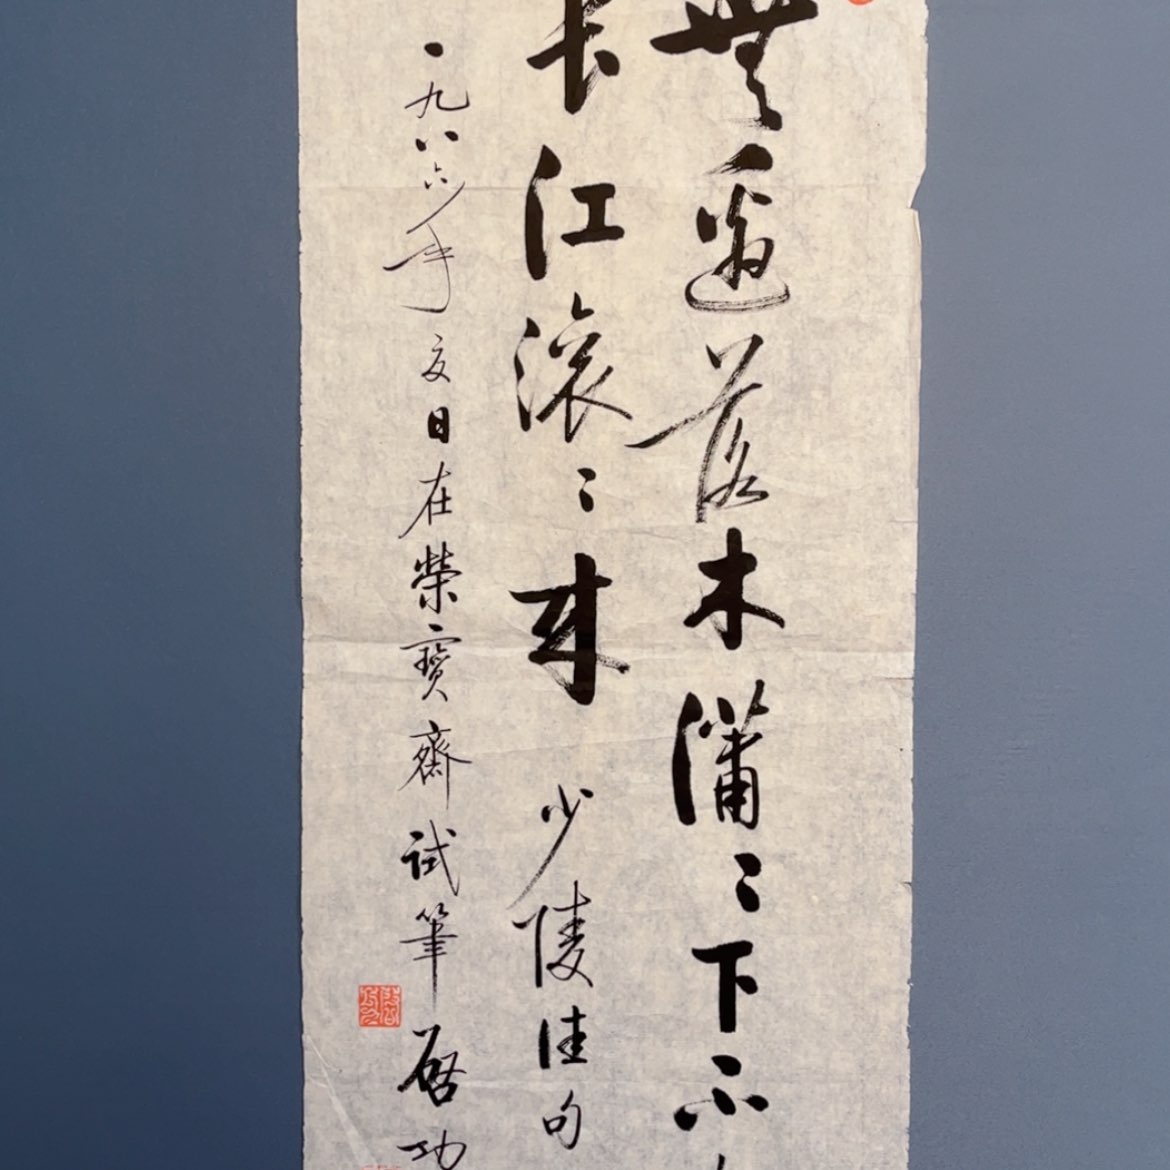 無邊落木瀟〻下不
長江滾〻來 少陵佳句
一九八六年夏日在榮寶齋試筆 啓功